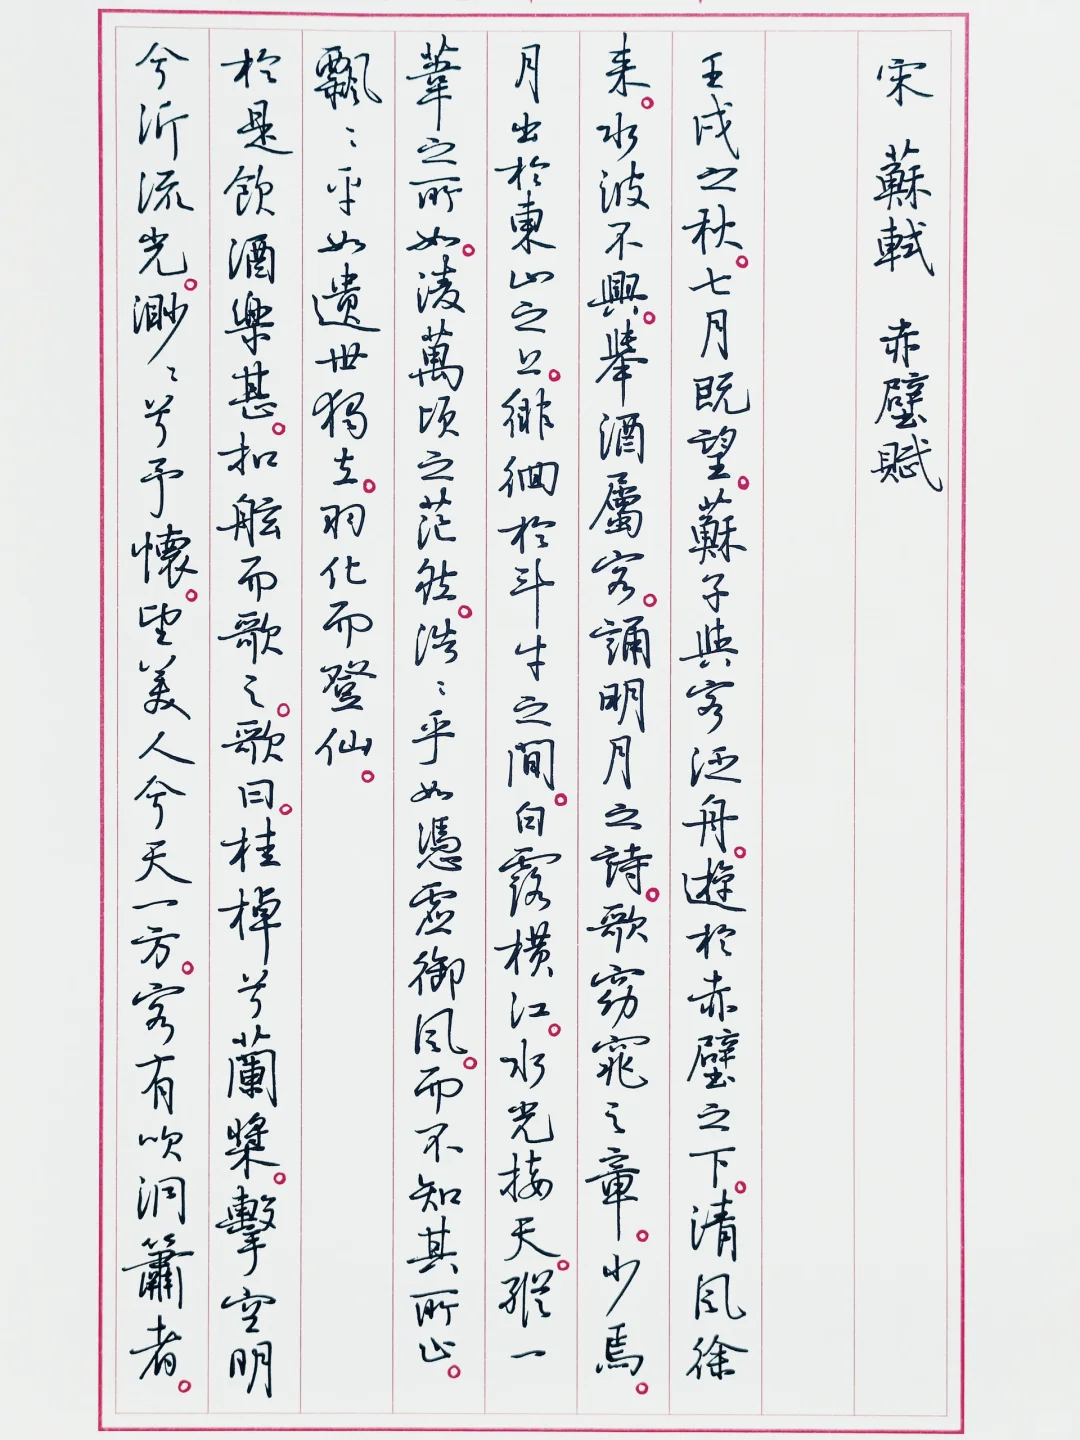 宋 蘇軾 赤壁賦
壬戌之秋。七月既望。蘇子與客泛舟。遊於赤壁之下。清風徐
来。水波不興。舉酒屬客。誦明月之詩。歌窈窕之章。少焉。
月出於東山之上。徘徊於斗牛之間。白露横江。水光接天。縱一
葦之所如。淩萬頃之茫然。浩〻乎如憑虛御風。而不知其所止。
飄〻乎如遺世獨立。羽化而登仙。
於是飲酒樂甚。扣舷而歌之。歌曰。桂棹兮蘭槳。擊空明
兮泝流光。渺〻兮予懷。望美人兮天一方。客有吹洞簫者。